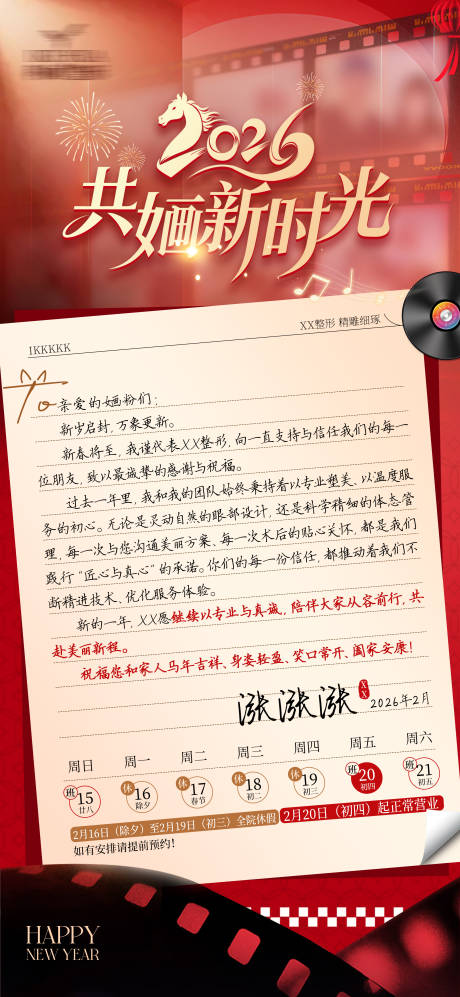 2026
共婳新时光
1KKKKK
XX整形 精雕细琢
To 亲爱的婳粉们：
新岁启封，万象更新。
新春将至，我谨代表XX整形，向一直支持与信任我们的每一
位朋友，致以最诚挚的感谢与祝福。
过去一年里，我和我的团队始终秉持着以专业塑美、以温度服
务的初心。无论是灵动自然的眼部设计，还是科学精细的体态管
理，每一次与您沟通美丽方案、每一次术后的贴心关怀，都是我们
践行“匠心与真心”的承诺。你们的每一份信任，都推动着我们不
断精进技术、优化服务体验。
新的一年，XX愿继续以专业与真诚，陪伴大家从容前行，共
赴美丽新程。
祝福您和家人马年吉祥、身姿轻盈、笑口常开、阖家安康！
涨涨涨 XX 2026年2月
周日 周一 周二 周三 周四 周五 周六
班 15 廿八 休 16 除夕 休 17 春节 休 18 初二 休 19 初三 班 20 初四 班 21 初五
2月16日（除夕）至2月19日（初三）全院休假 2月20日（初四）起正常营业
如有安排请提前预约！
HAPPY
NEW YEAR